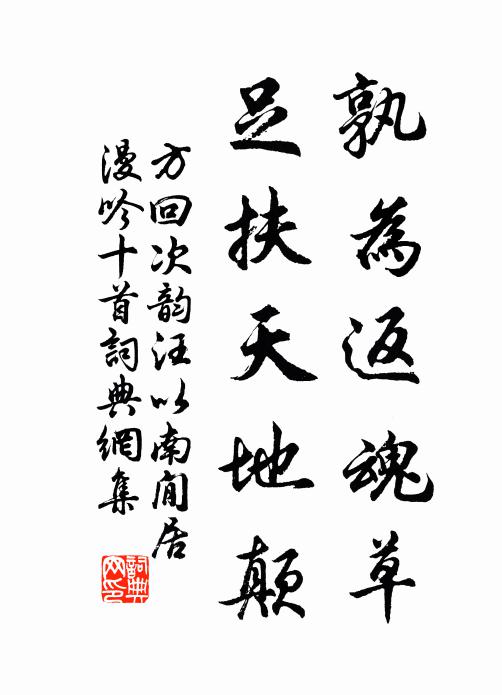 孰為返魂草
足扶天地顛
方回次韵汪以南閒居
漫吟十首詞典網集
詞典
网印